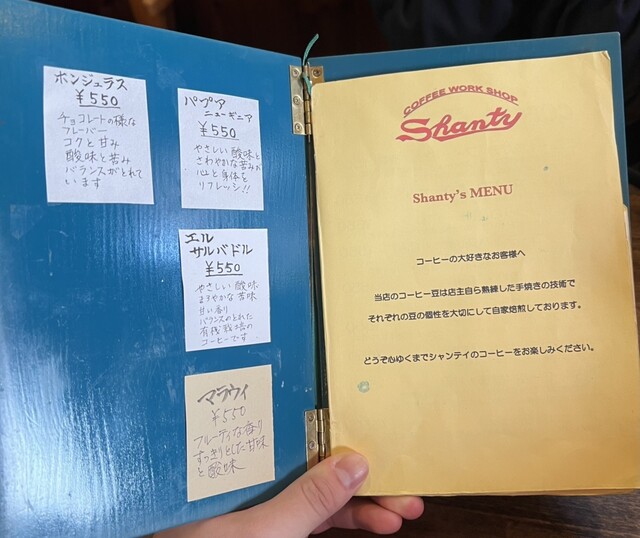 ホンジュラス
¥550
チョコレートの様な
フレーバー
コクと甘み
酸味と苦み
バランスがとれて
います
パプア
ニューギニア
¥550
やさしい酸味と
さわやかな苦みが
心と身体を
リフレッシュ!!
エル
サルバドル
¥550
やさしい酸味
まろやかな苦味
甘い香り
バランスのとれた
有機栽培の
コーヒーです
マラウィ
¥550
フルーティな香り
すっきりとした甘味
と酸味
COFFEE WORK SHOP
Shanty
Shanty's MENU
コーヒーの大好きなお客様へ
当店のコーヒー豆は店主自ら熟練した手焼きの技術で
それぞれの豆の個性を大切にして自家焙煎しております。
どうぞ心ゆくまでシャンテイのコーヒーをお楽しみください。